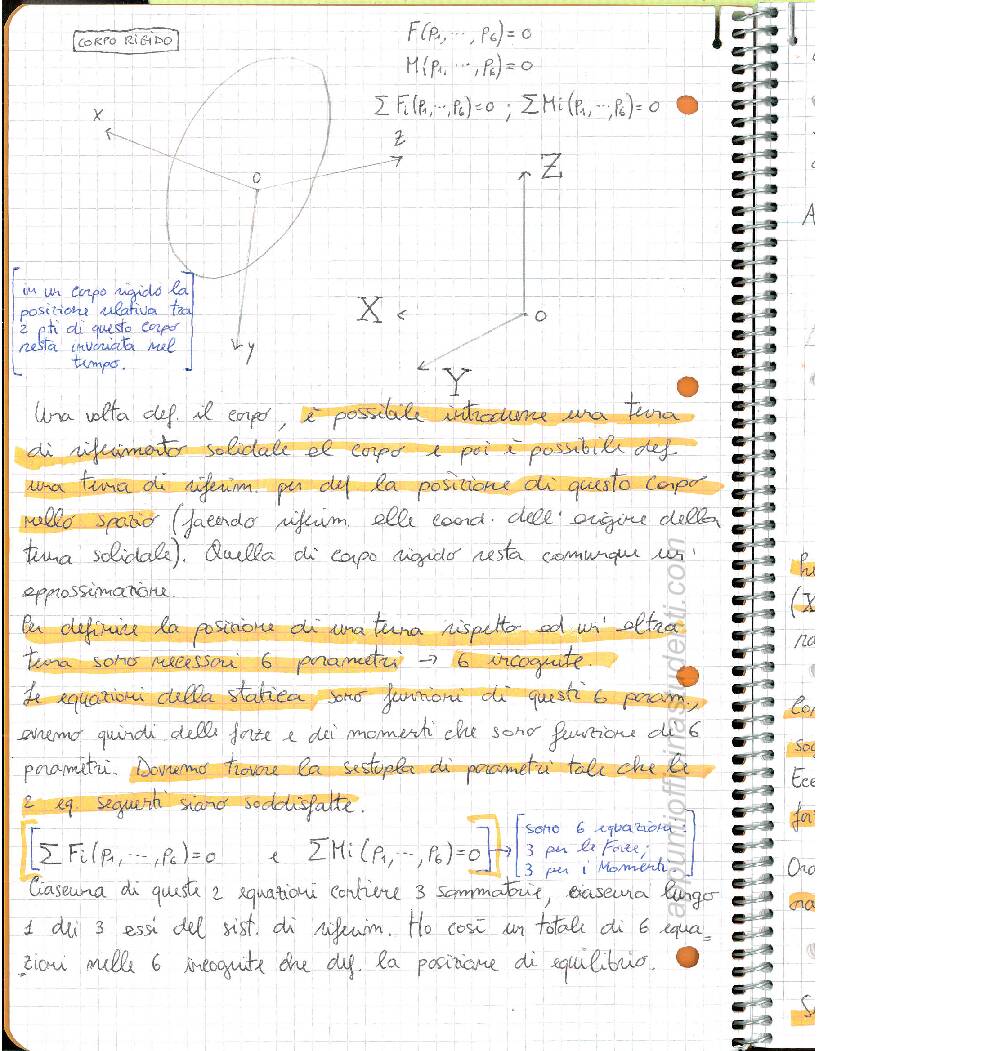 CORPO RIGIDO
F(p1, ..., p6) = 0
M(p1, ..., p6) = 0
∑ Fi(p1, ..., p6) = 0 ; ∑ Mi(p1, ..., p6) = 0
x
z
O
y
Z
X
O
Y
in un corpo rigido la
posizione relativa tra
2 pti di questo corpo
resta invariata nel
tempo.
Una volta def. il corpo, è possibile introdurre una terna
di riferimento solidale al corpo e poi è possibile def
una terna di riferim. per def la posizione di questo corpo
nello spazio (facendo riferim. alle coord. dell'origine della
terna solidale). Quella di corpo rigido resta comunque un'
approssimazione.
Per definire la posizione di una terna rispetto ad un'altra
terna sono necessari 6 parametri → 6 incognite.
Le equazioni della statica sono funzioni di questi 6 param.,
avremo quindi delle forze e dei momenti che sono funzione di 6
parametri. Dovremo trovare la sestupla di parametri tale che le
2 eq. seguenti siano soddisfatte.
[∑ Fi(p1, ..., p6) = 0 e ∑ Mi(p1, ..., p6) = 0] →
sono 6 equazioni:
3 per le Forze;
3 per i Momenti
Ciascuna di queste 2 equazioni contiene 3 sommatorie, ciascuna lungo
1 dei 3 assi del sist. di riferim. Ho così un totale di 6 equa=
zioni nelle 6 incognite che def. la posizione di equilibrio.
appuntiofficinastudenti.com